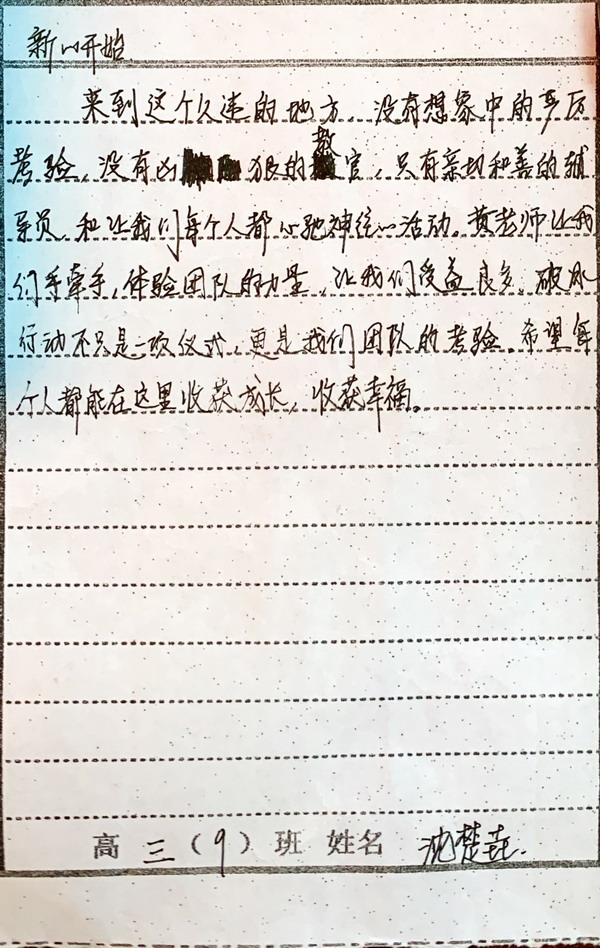 新的开始
来到这个久违的地方，没有想象中的严厉
考验，没有凶狠的教官，只有亲切和善的辅
导员和让我们每个人都心驰神往的活动。黄老师让我
们手牵手，体验团队的力量，让我们受益良多。破冰
行动不只是一项仪式，更是我们团队的考验。希望每
个人都能在这里收获成长，收获幸福。
高三（9）班 姓名 沈楚